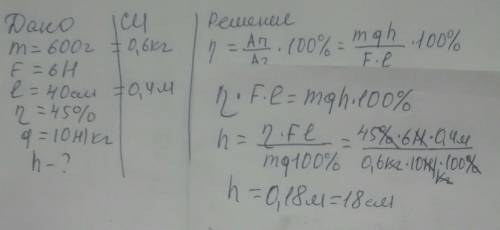 Дано
m = 600г
F = 6Н
l = 40см
η = 45%
g = 10Н/кг
h - ?
СИ
= 0,6кг
= 0,4м
Решение
η = Aп/Aз · 100% = mgh/F·l · 100%
η · F · l = mgh · 100%
h = η · Fl / mg100% = 45% · 6Н · 0,4м / 0,6кг · 10Н/кг · 100%
h = 0,18м = 18см